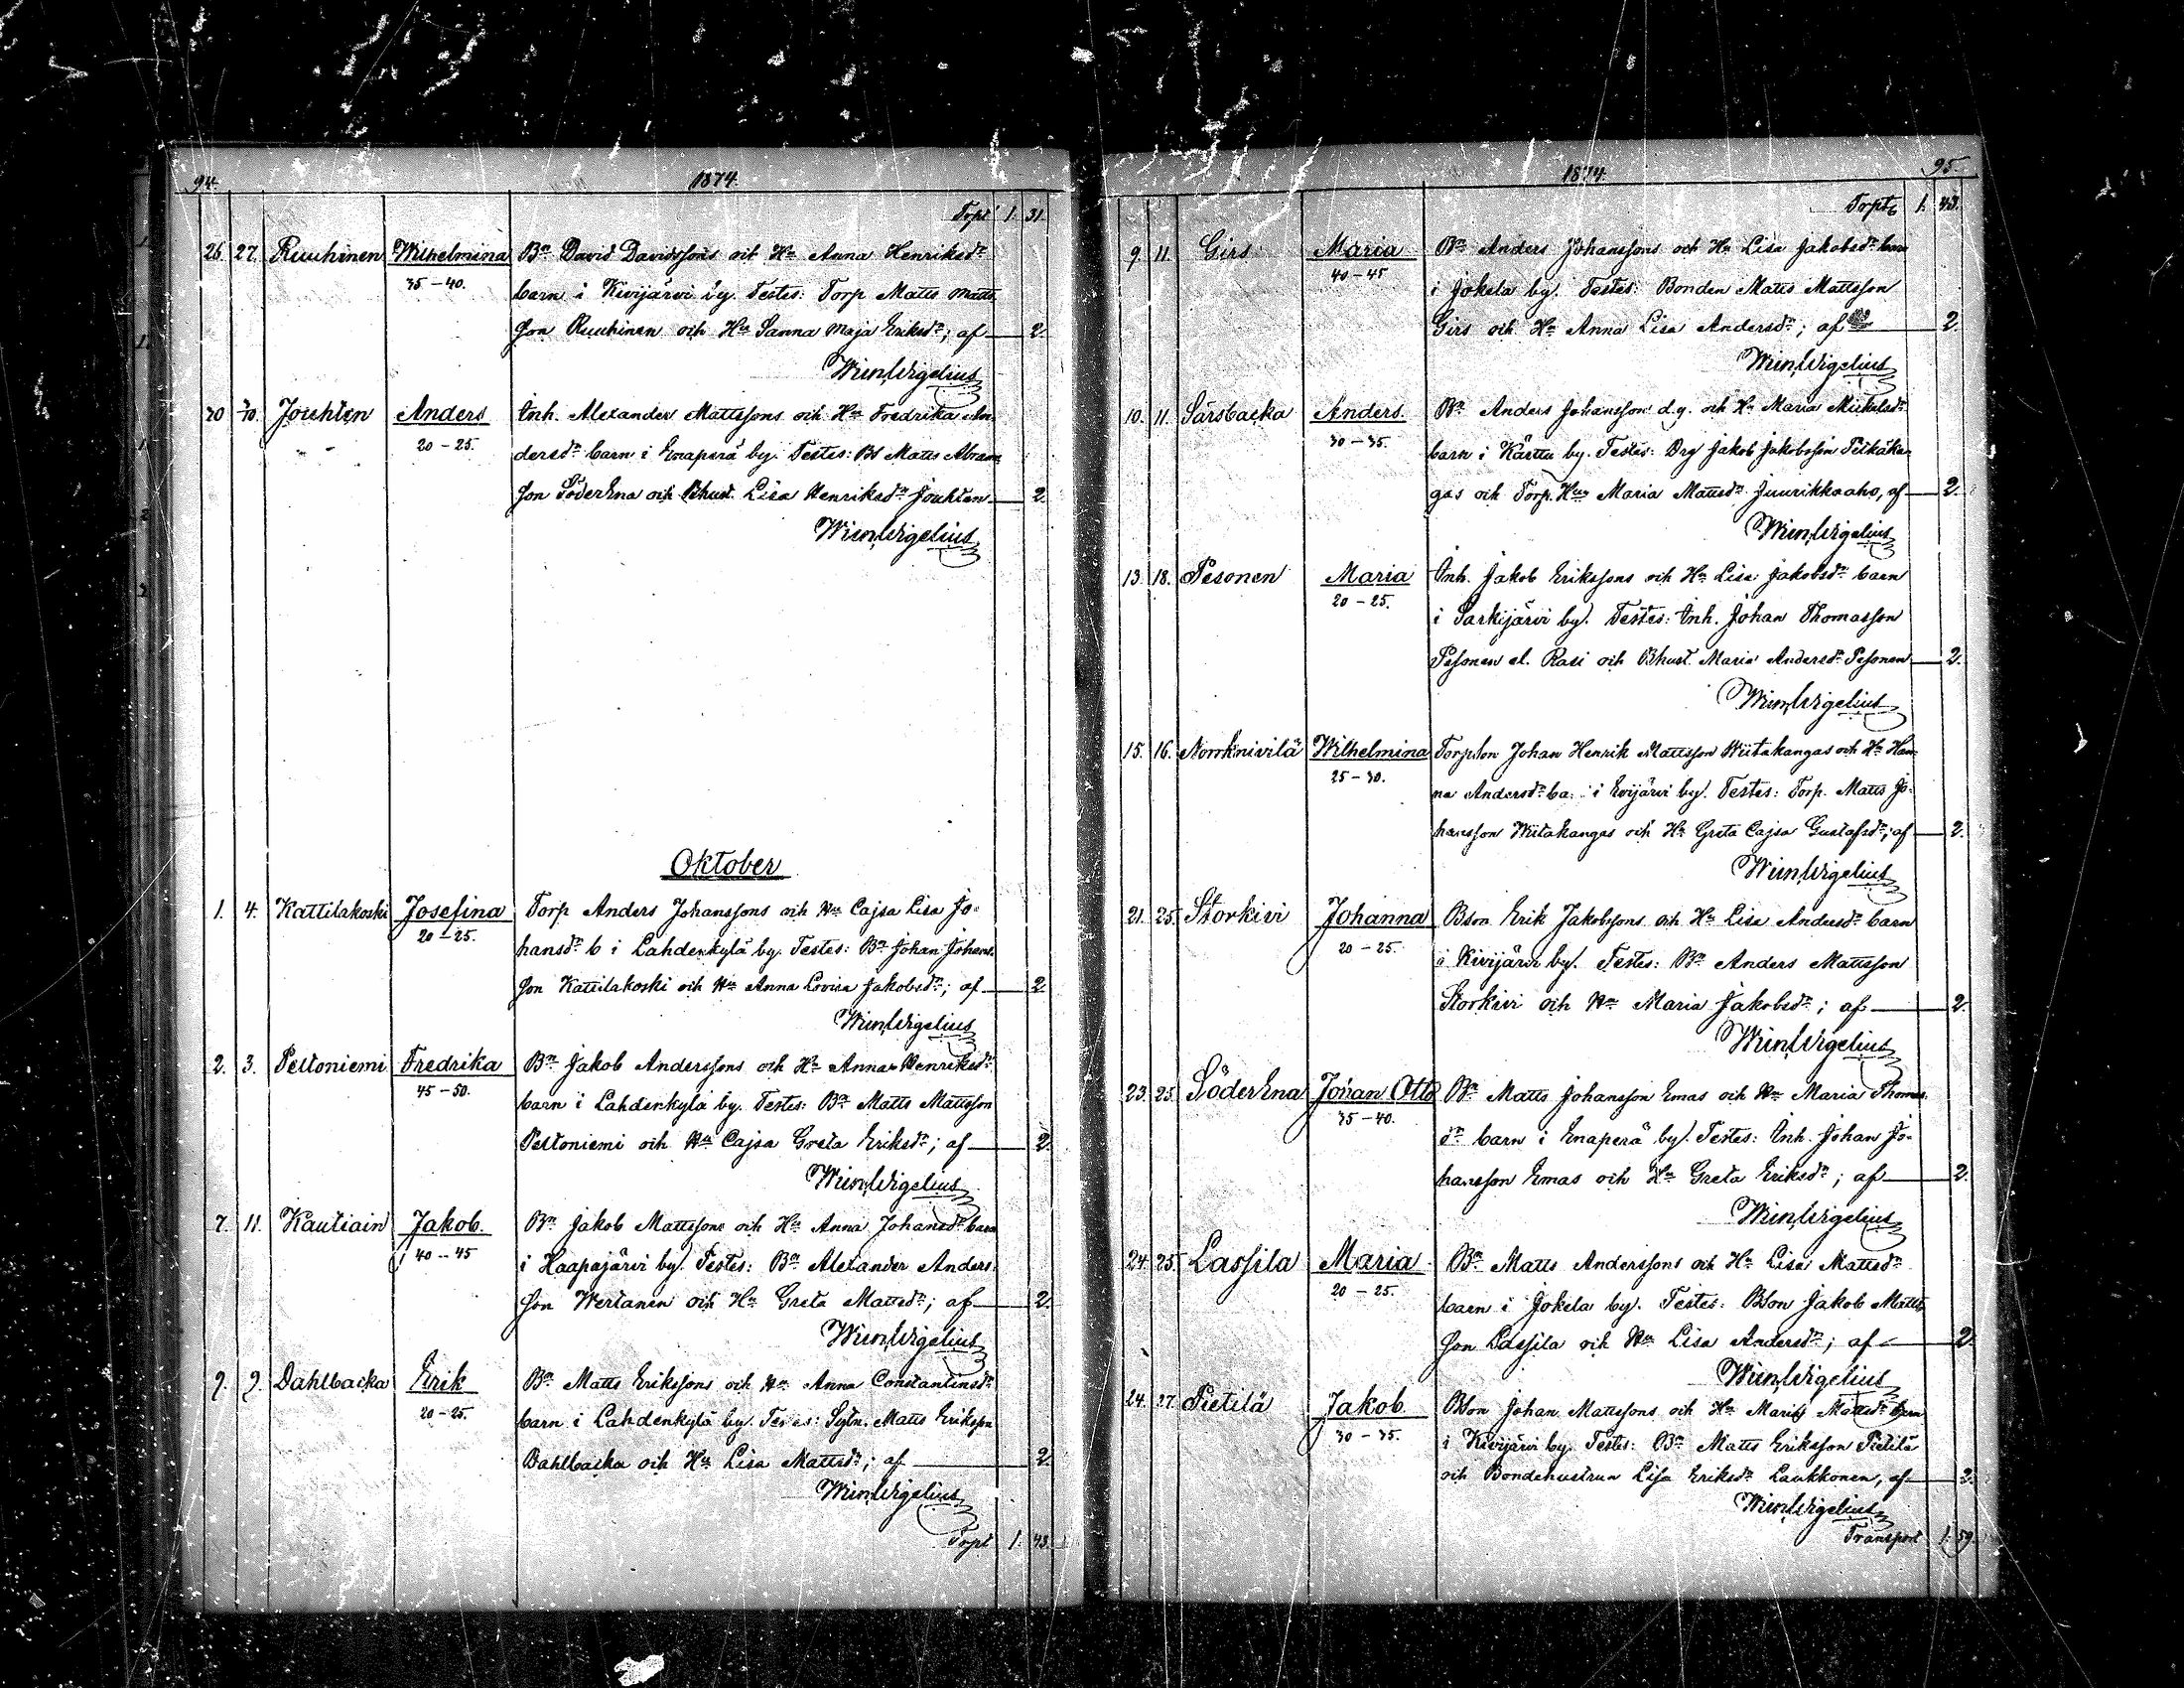 94. 1874.
Trpt 1. 31.
26. 27. Ruuhinen Wilhelmina Bn David Davidssons och Hu Anna Henriksdr
35-40. barn i Kivijärvi by. Testes: Torp Matts Matts
son Ruuhinen och Hu Sanna Maja Eriksdr; af 2.
Wim Wigelius
30 30. Jouhten Anders Inh. Alexander Mattssons och Hu Fredrika An
20-25. dersdr barn i Enaperä by. Testes: Bs Matts Abram
son SöderEna och Bhust. Lisa Henriksdr Jouhten 2
Wim Wigelius
Oktober
1. 4. Kattilakoski Josefina Torp Anders Johanssons och Hu Cajsa Lisa Jo-
20-25. hansdr b i Lahdenkylä by. Testes: Bn Johan Johans
son Kattilakoski och Hu Anna Lovisa Jakobsdr; af 2
Wim Wigelius
2. 3. Peltoniemi Fredrika Bn Jakob Anderssons och Hu Anna Henriksdr
45-50. barn i Lahdenkylä by. Testes: Bn Matts Mattsson
Peltoniemi och Hu Cajsa Greta Eriksdr; af 2
Wim Wigelius
7. 11. Kautiain Jakob. Bn Jakob Mattssons och Hu Anna Johansdr barn
40-45 i Haapajärvi by. Testes: Bn Alexander Anders
son Wertanen och Hu Greta Mattsdr; af 2.
Wim Wigelius
9. 9. Dahlbacka Erik Bn Matts Erikssons och Hu Anna Constantinsdr
20-25. barn i Lahdenkylä by. Testes: Sytn. Matts Eriksson
Dahlbacka och Hu Lisa Mattsdr; af 2
Wim Wigelius
Trpt 1. 43.
1874. 95.
Trpt 1. 43.
9. 11. Girs Maria Bn Anders Johanssons och Hu Lisa Jakobsdr barn
40-45 i Jokela by. Testes: Bonden Matts Mattsson
Girs och Hu Anna Lisa Andersdr; af 2.
Wim Wigelius
10. 11. Särsbacka Anders. Bn Anders Johansson d.y. och Hu Maria Mickelsdr
30-35. barn i Särttu by. Testes: Drg Jakob Jakobsson Pitkäkan
gas och Torp. Hu Maria Mattsdr Juurikkaaho, af 2.
Wim Wigelius
13. 18. Pesonen Maria Inh. Jakob Erikssons och Hu Lisa Jakobsdr barn
20-25. i Särkijärvi by. Testes: Inh. Johan Thomasson
Pesonen el. Rasi och Bhust. Maria Andersdr Pesonen 2.
Wim Wigelius
15. 16. Norrknivilä Wilhelmina Torpson Johan Henrik Mattsson Wiitakangas och Hu Han
25-30. na Andersdr ba. i Evijärvi by. Testes: Torp. Matts Jo-
hansson Wiitakangas och Hu Greta Cajsa Gustafsdr; af 2.
Wim Wigelius
21. 25. Storkivi Johanna Bson Erik Jakobssons och Hu Lisa Andersdr barn
20-25. i Kivijärvi by. Testes: Bn Anders Mattsson
Storkivi och Hu Maria Jakobsdr; af 2.
Wim Wigelius
23. 25. SöderEna Johan Otto Bn Matts Johansson Emas och Hu Maria Thomas
35-40. dr barn i Enaperä by. Testes: Inh. Johan Jo-
hansson Emas och Hu Greta Eriksdr; af 2.
Wim Wigelius
24. 25. Lassila Maria Bn Matts Anderssons och Hu Lisa Mattsdr
20-25. barn i Jokela by. Testes: Bson Jakob Matts
son Lassila och Hu Lisa Andersdr; af 2
Wim Wigelius
24. 27. Pietilä Jakob Bson Johan Mattssons och Hu Maria Mattsdr barn
30-35. i Kivijärvi by. Testes: Bn Matts Eriksson Pietilä
och Bondehustrun Lisa Eriksdr Laukkonen, af 2.
Wim Wigelius
Transport 1. 59.